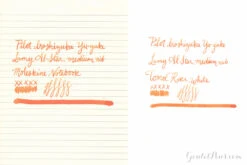 Pilot Iroshizuku Yu-yake
Lamy Al-Star, medium nib
Moleskine Notebook
XXXX
Pilot Iroshizuku Yu-yake
Lamy Al-Star, medium nib
Tomoe River white
XXXX